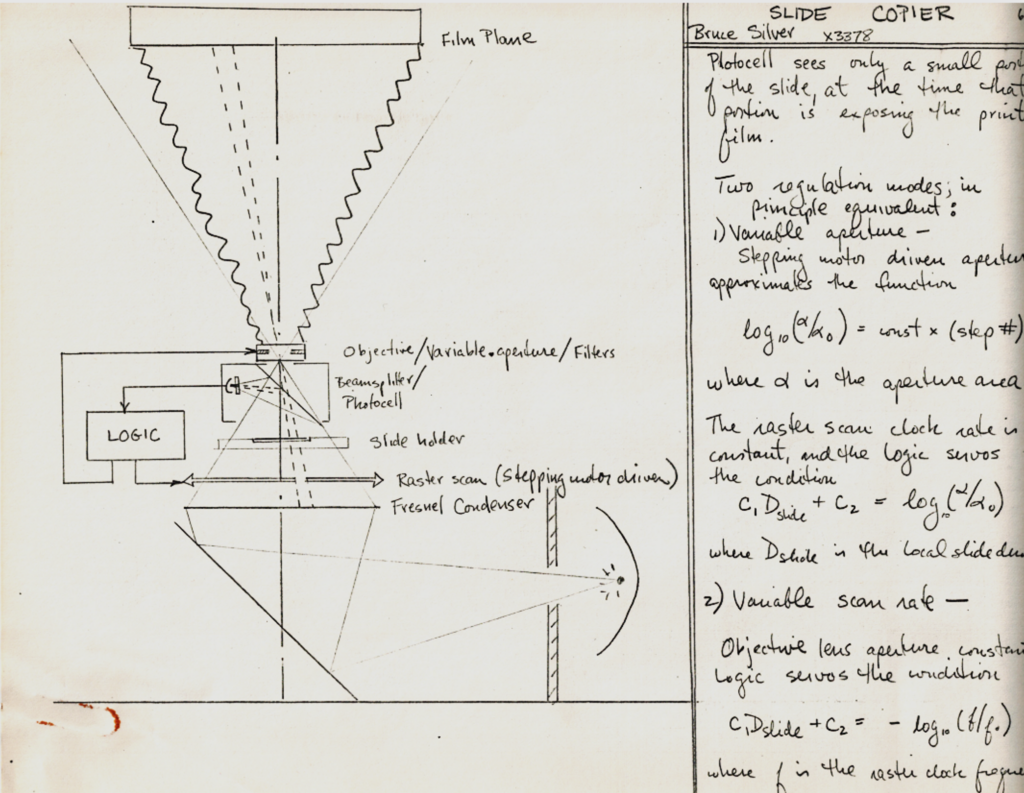 Film Plane
Objective/Variable aperture/Filters
Beamsplitter/
Photocell
LOGIC
Slide holder
Raster scan (Stepping motor driven)
Fresnel Condenser
SLIDE COPIER
Bruce Silver x3378
Photocell sees only a small
of the slide, at the time that
portion is exposing the print
film.
Two regulation modes; in
principle equivalent:
1) Variable aperture —
Stepping motor driven
approximates the function
log₁₀(α/α₀) = const × (step #)
where α is the aperture area
The raster scan clock rate is
constant, and the logic servos
the condition
C₁D_slide + C₂ = log₁₀(α/α₀)
where D_slide is the local slide
2) Variable scan rate —
Objective lens aperture
Logic servos the condition
C₁D_slide + C₂ = - log₁₀(f/f₀)
where f is the raster clock